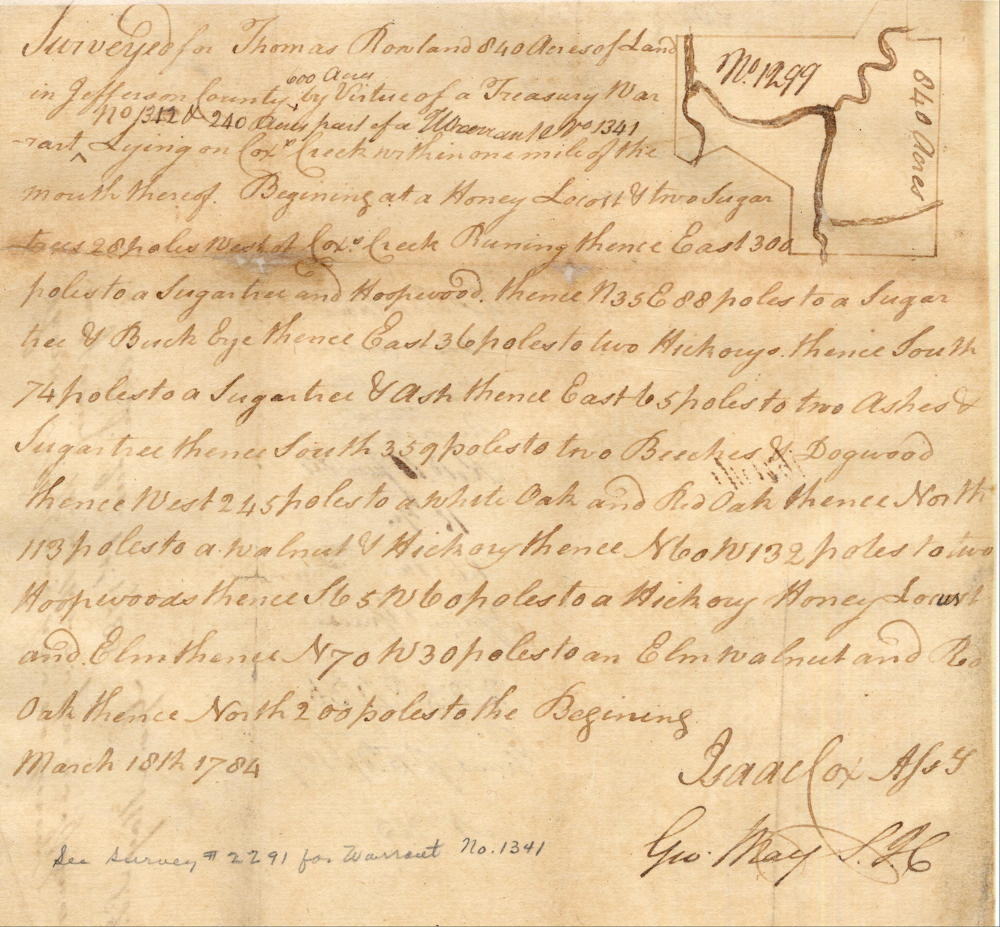 Surveyed for Thomas Rowland 840 Acres of Land
600 Acres
in Jefferson County by Virtue of a Treasury War
No 1312 & 240 Acres part of a Warrant No 1341
rant Lying on Coxs Creek within one mile of the
mouth thereof. Begining at a Honey Locust & two Sugar
trees 28 poles West of Coxs Creek Runing thence East 300
poles to a Sugartree and Hoopwood. thence N35E 88 poles to a Sugar
tree & Buck Eye thence East 36 poles to two Hickorys. thence South
74 poles to a Sugartree & Ash thence East 65 poles to two Ashes &
Sugartree thence South 359 poles to two Beeches & Dogwood
thence West 245 poles to a white Oak and Red Oak thence North
113 poles to a walnut & Hickory thence N60W 132 poles to two
Hoopwoods thence S65W 60 poles to a Hickory Honey Locust
and Elm thence N70W 30 poles to an Elm walnut and Red
Oak thence North 200 poles to the Begining
March 18th 1784
Isaac Cox Ass S
Geo. May S.J.C
See survey # 2291 for Warrant No. 1341
No 1299
840 Acres